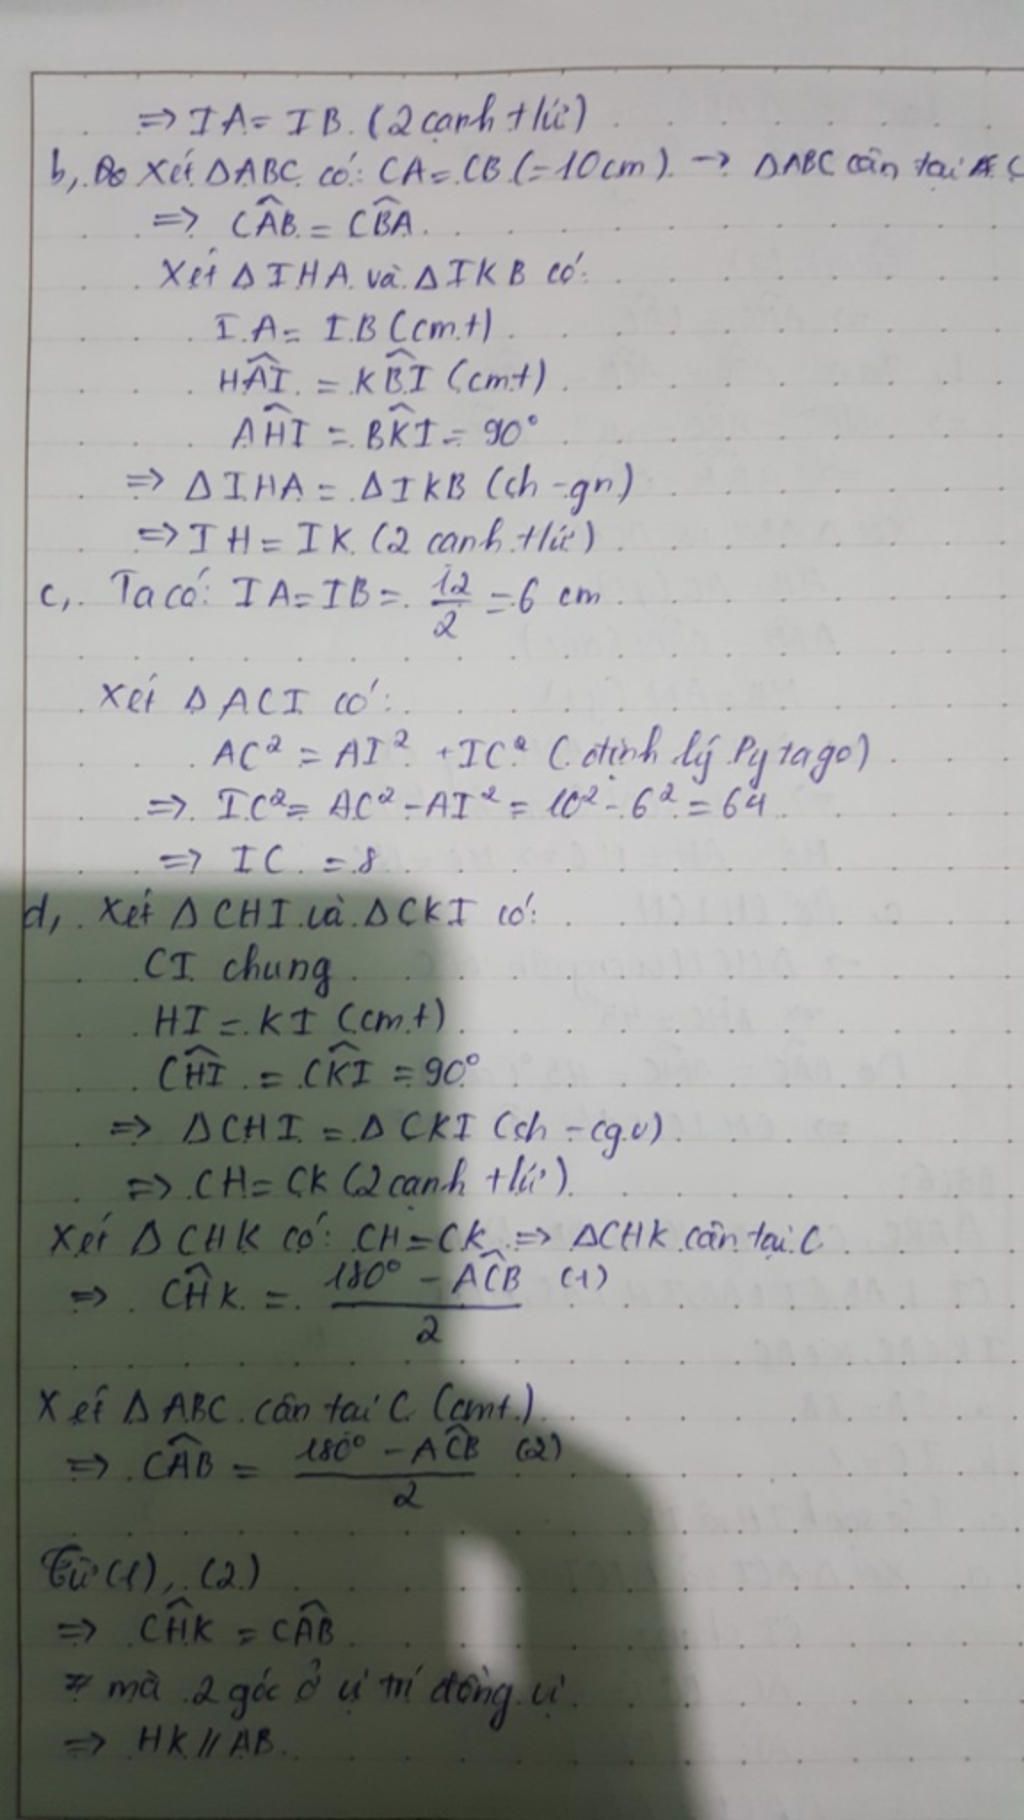 ⇒ IA = IB (2 cạnh tlứ)
b, Xét ΔABC có: CA = CB (=10cm) → ΔABC cân tại C
⇒ CÂB = CB̂A
Xét ΔIHA và ΔIKB có:
IA = IB (cmt)
HÂI = KB̂I (cmt)
AĤI = BK̂I = 90°
⇒ ΔIHA = ΔIKB (ch-gn)
⇒ IH = IK (2 cạnh tlứ)
c, Ta có: IA = IB = 12/2 = 6 cm
Xét ΔACI có:
AC² = AI² + IC² (định lý Pytago)
⇒ IC² = AC² - AI² = 10² - 6² = 64
⇒ IC = 8
d, Xét ΔCHI và ΔCKI có:
CI chung
HI = KI (cmt)
CĤI = CK̂I = 90°
⇒ ΔCHI = ΔCKI (ch-cgv)
⇒ CH = CK (2 cạnh tlứ)
Xét ΔCHK có: CH = CK ⇒ ΔCHK cân tại C
⇒ CĤK = (180° - AĈB)/2 (1)
Xét ΔABC cân tại C (cmt)
⇒ CÂB = (180° - AĈB)/2 (2)
Từ (1), (2)
⇒ CĤK = CÂB
mà 2 góc ở vị trí đồng vị
⇒ HK // AB